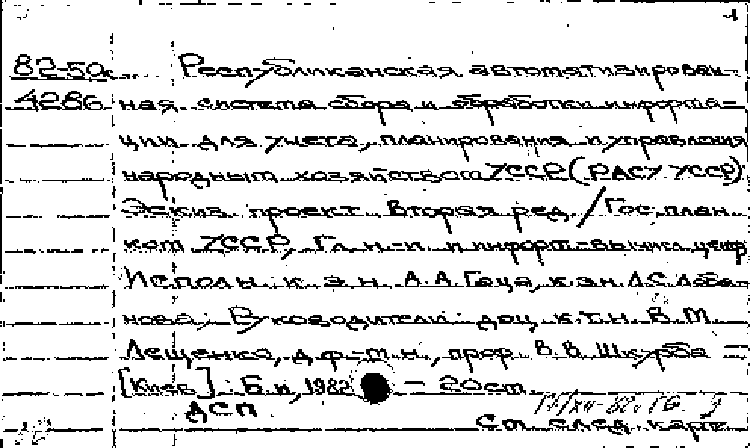 82-50к Республиканская автоматизирован-
4286 ная система сбора и обработки информа=
ции для учета, планирования и управления
народным хозяйством УССР (РАСУ УССР).
Эскиз. проект. Вторая ред. / Госплан.
ком УССР, Гл. н.-и. и информ.-вычисл. центр
Исполн. к. э. н. А. А. Гаца, к. эн. Л. С. Лоба-
нова; Руководители: доц. к. т. н. В. М.
Лещенко, д. ф.-м. н., проф. В. В. Шкурба =
[Киев]: Б. и., 1982 - 20 см.
ДСП
См. след. карт.